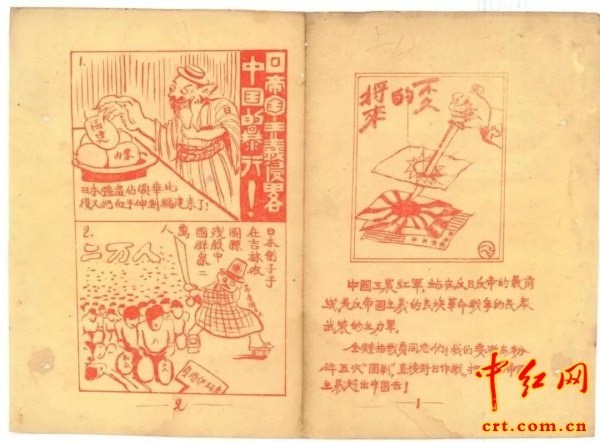 日帝国主義侵畧
中国的暴行！
1.
福建
内蒙
日本強盗佔領華北
後又把血手伸到福建来了！
2.
二万人
日本劊子手
在吉林
国縣
残殺中
国群衆二
萬
人
2
不久
的
将来
中國工農紅軍，站在反日反帝的最前
线，是反帝國主義的民族革命戰争的民衆
武装的主力軍。
全體指戰員同志們！我們要澈底粉
碎五次“圍剿”，直接對日作戰，
主義趕出中国去！
1
中红网
crt.com.cn